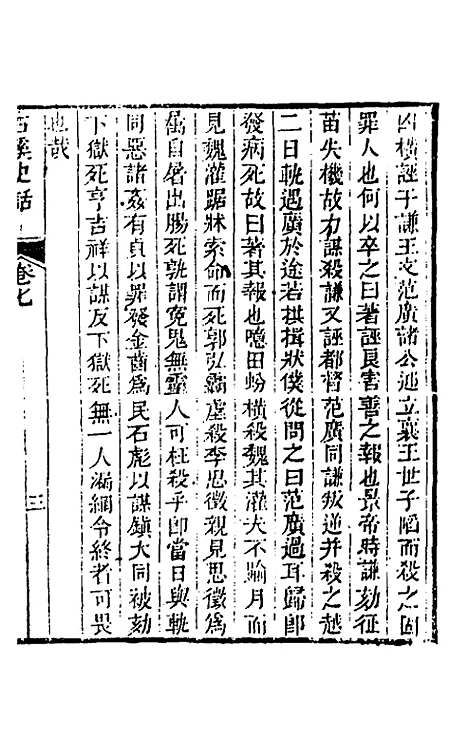 凶橫誣于謙王文范廣諸公迎立襄王世子陷而殺之固
罪人也何以卒之曰著誣良害善之報也景帝時謙劾征
苗失機故力謀殺謙又誣都督范廣同謙叛逆并殺之越
二日軏過廣於途若拱揖狀僕從問之曰范廣過耳歸卽
發病死故曰著其報也噫田蚡橫殺魏其灌夫不踰月而
見魏灌踞牀索命而死郭弘霸虐殺李思徵親見思徵爲
厲自屠出腸死孰謂冤鬼無靈人可枉殺乎卽當日與軏
同惡諸姦有貞以罪發金齒爲民石彪以謀鎮大同被劾
下獄死亨吉祥以謀反下獄死無一人漏網令終者可畏
也哉
石溪史話
卷七
三